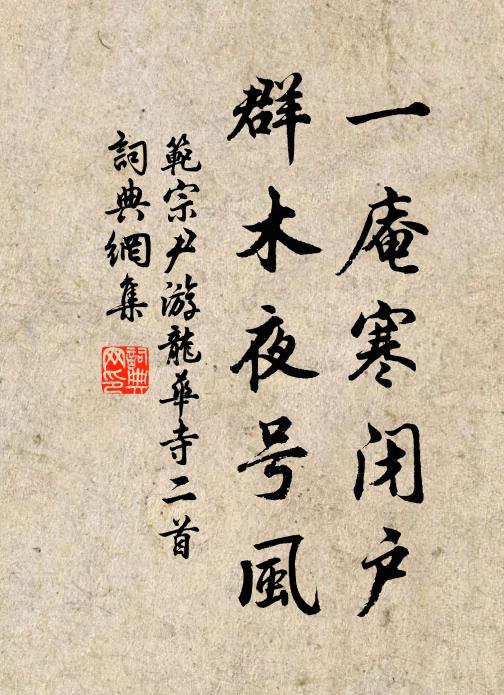 一庵寒闭户
群木夜号風
範宗尹游龍華寺二首
詞典網集
詞典
网印